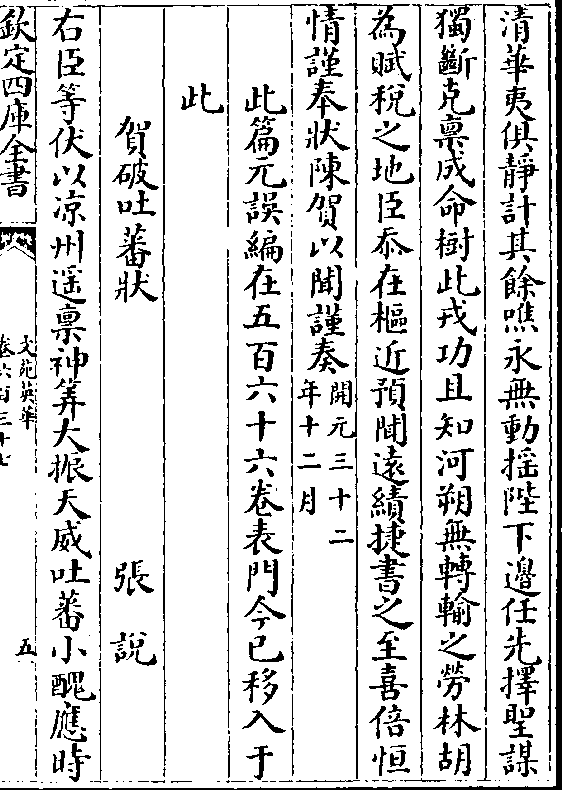 清華夷俱靜計其餘噍永無動揺陛下邊任先擇聖謀
獨斷克禀成命樹此戎功且知河朔無轉輸之勞林胡
為賦稅之地臣忝在樞近預聞遠績捷書之至喜倍恒
情謹奉狀陳賀以聞謹奏開元二十二
年十二月
此篇元誤編在五百六十六卷表門今已移入于
此
賀破吐蕃狀 張說
右臣等伏以凉州遥禀神筭大振天威吐蕃小醜應時
欽定四庫全書
文苑英華
卷六百三十七
五